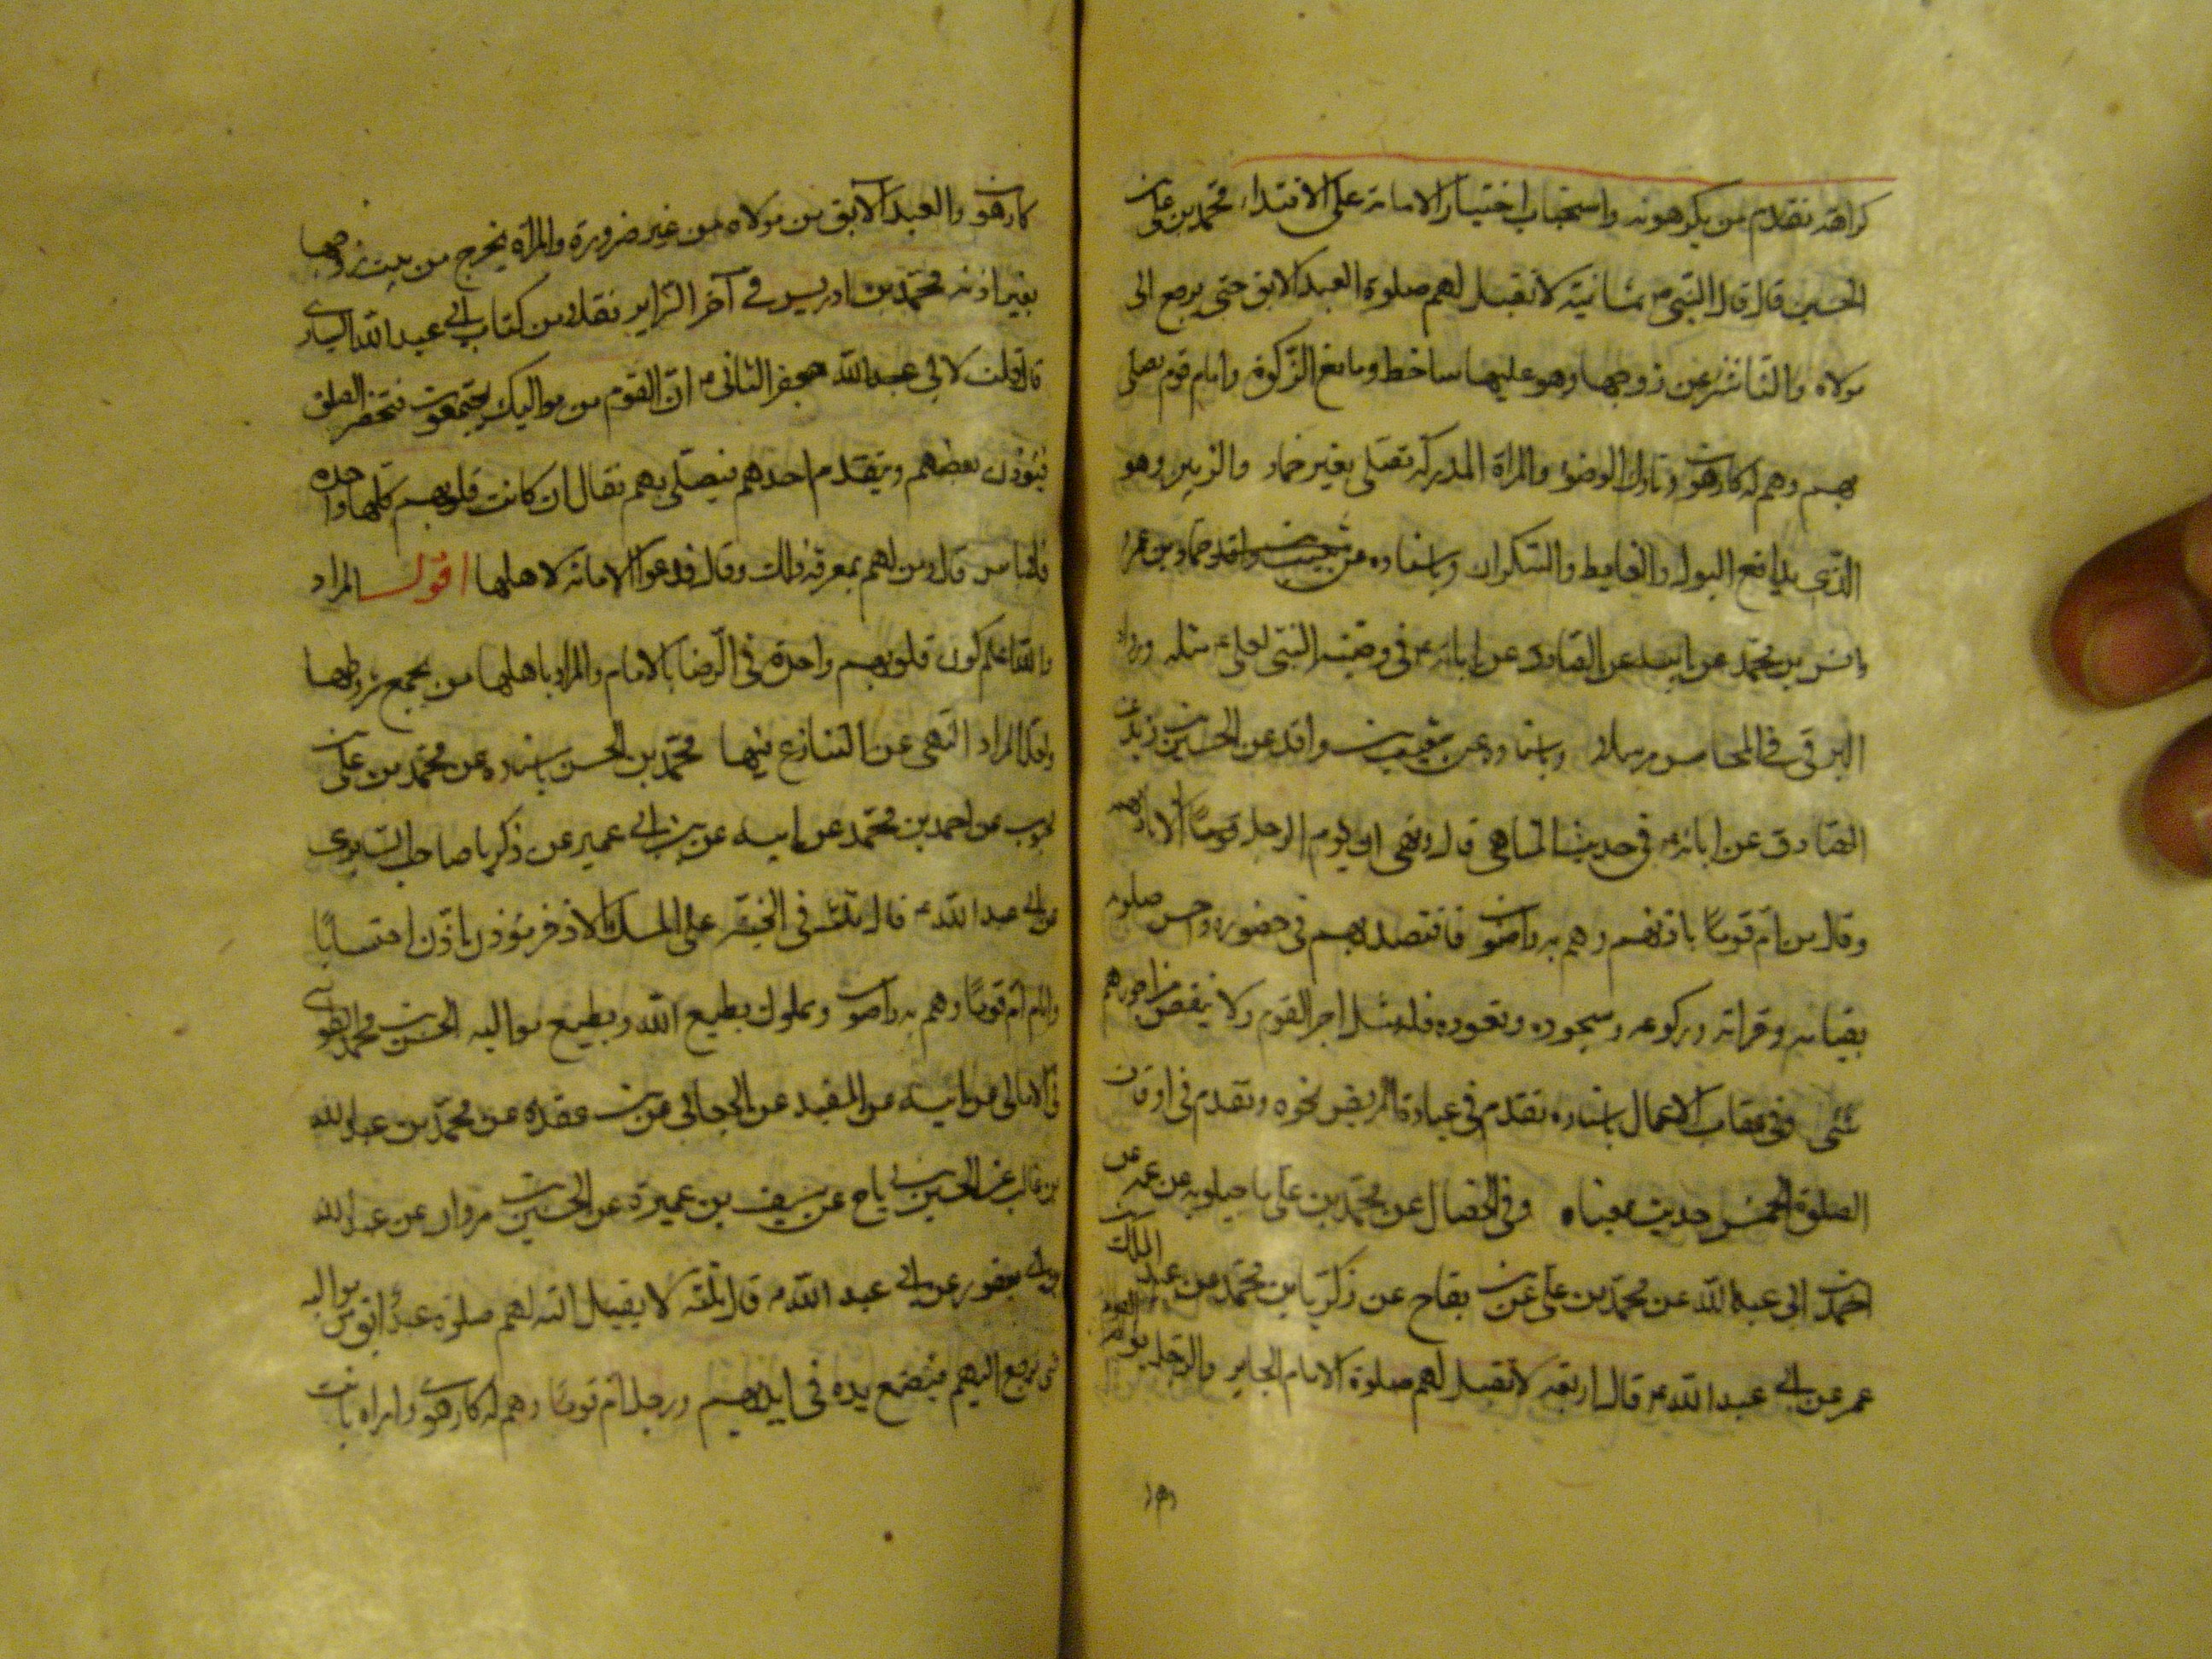 كراهة تقدم من يكرهونه واستحباب اختيار الامامة على الاقتداء محمد بن علي بن
الحسين قال قال النبي ثمانية لا تقبل لهم صلوة العبد الآبق حتى يرجع الى
مولاه والناشز عن زوجها وهو عليها ساخط ومانع الزكوة وامام قوم يصلي
بهم وهم له كارهون وتارك الوضؤ والمراة المدركة تصلى بغير خمار والزبين وهو
الذى يدافع البول والغايط والسكران وباسناده عن حماد بن عمرو
وانس بن محمد عن ابيه عن الصادق عن ابائه في وصية النبى لعلي مثله ورواه
البرقي في المحاسن مرسلا وباسناده عن شعيب بن واقد عن الحسين بن زيد عن
الصادق عن ابائه في حديث المناهى قال ونهى ان يؤم الرجل قوما الا باذنهم
وقال من ام قوما باذنهم وهم به راضون فاقتصد بهم في حضوره واحسن صلوته
بقيامه وقراته وركوعه وسجوده وقعوده فله مثل اجر القوم ولا ينقص من اجورهم
شئى وفي عقاب الاعمال باسناده تقدم في عيادة المريض نحوه وتقدم في اوقات
الصلوة الخمس حديث بمعناه وفي الخصال عن محمد بن علي ماجيلويه عن عمه عن
احمد بن ابي عبد الله عن محمد بن علي عن ابن بقاح عن زكريا بن محمد عن عبد الملك بن
عمر عن ابي عبد الله قال اربعة لا تقبل لهم صلوة الامام الجاير والرجل يؤم القوم وهم له
كارهون والعبد الآبق من مولاه من غير ضرورة والمراة تخرج من بيت زوجها
بغير اذنه محمد بن ادريس في آخر السراير نقلا من كتاب ابي عبد الله السياري
قال قلت لابي جعفر الثانى ان القوم من مواليك يجتمعون فتحضر الصلوة
فيؤذن بعضهم ويتقدم احدهم فيصلى بهم فقال ان كانت قلوبهم كلها واحدة
فلا باس قال ومن لهم بمعرفة ذلك قال فدعوا الامامة لاهلها اقول المراد
والله اعلم كون قلوبهم واحدة في الرضا بالامام والمراد باهلها من يجمع شروطها
ولعل المراد النهى عن التنازع فيها محمد بن الحسن باسناده عن محمد بن علي بن
محبوب عن احمد بن محمد عن ابيه عن ابن ابي عمير عن زكريا صاحب السابرى
عن ابي عبد الله قال ثلثة في الجنة على المسك الاذفر مؤذن اذن احتسابا
وامام ام قوما وهم به راضون ومملوك يطيع الله ويطيع مواليه الحسن بن محمد الطوسي
في الامالى عن ابيه عن المفيد عن الجعابي عن ابن عقده عن محمد بن عبد الله
بن غالب عن الحسين بن رياح عن سيف بن عميرة عن الحسين بن مروان عن عبد الله
بن ابي يعفور عن ابي عبد الله قال ثلثة لا يقبل الله لهم صلوة عبد ابق من مواليه
حتى يرجع اليهم فيضع يده في ايديهم ورجل ام قوما وهم له كارهون وامراة باتت